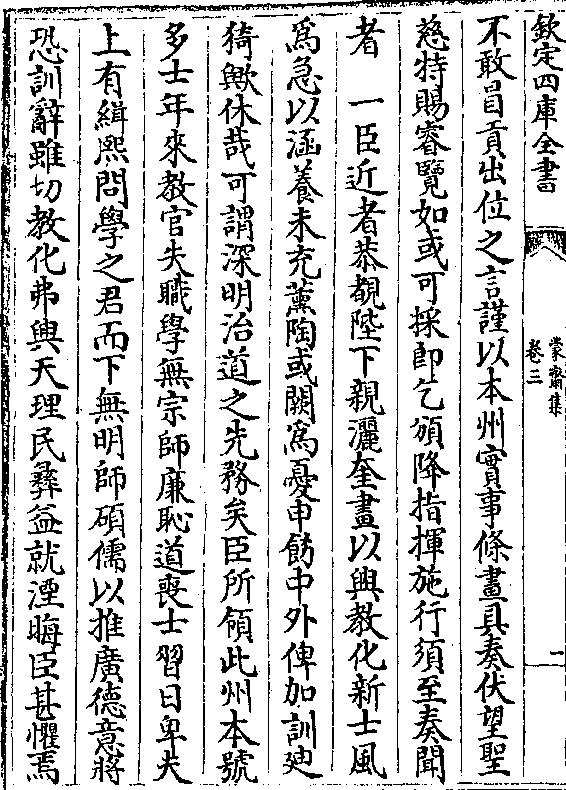 欽定四庫全書
蒙齋集
卷三
一
不敢冒貢出位之言謹以本州實事條畫具奏伏望聖
慈特賜睿覽如或可採即乞頒降指揮施行須至奏聞
者　一臣近者恭覩陛下親灑奎畫以興教化新士風
為急以涵養未充薰陶或闕為憂申飭中外俾加訓廸
猗歟休哉可謂深明治道之先務矣臣所領此州本號
多士年來教官失職學無宗師廉恥道喪士習日卑夫
上有緝熙問學之君而下無明師碩儒以推廣德意將
恐訓辭雖切教化弗興天理民彝益就湮晦臣甚懼焉